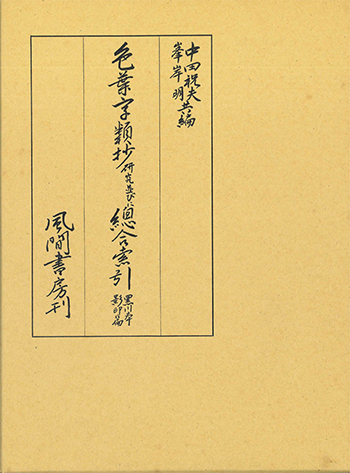 中田祝夫
峯岸明 共編
色葉字類抄 研究並びに 總合索引 黒川本 影印篇
風間書房刊